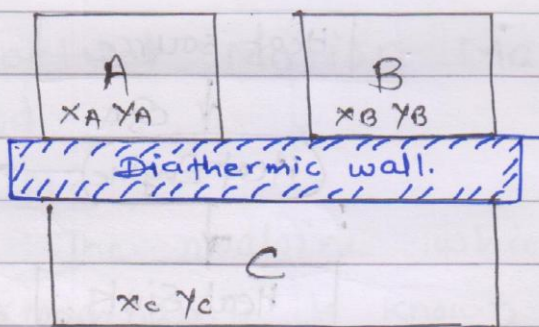 A
B
XA YA
XB YB
Diathermic wall.
C
Xc Yc